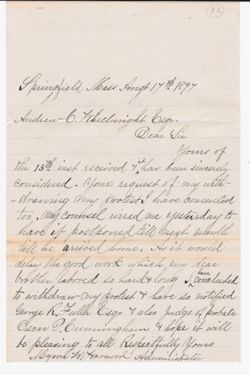 (12)
Springfield Mass Augt 17th 1897
Andrew C. Wheelwright Esqr.
Dear Sir
Yours of
the 13th inst received & it has been sincerely
considered. Your request of my with-
drawing my protest I have consented
too. My Counsel wired me yesterday to
have it postponed till next month
till he arrived home. As it would
delay the good work which my dear
brother labored so hard & long I have concluded
to withdraw my protest & have so notified
George R. Fuller Esqr & also Judge of Probate
Oscar P. Cunningham & hope it will
be pleasing to all Respectfully Yours
Myron W. Harmon Administrator